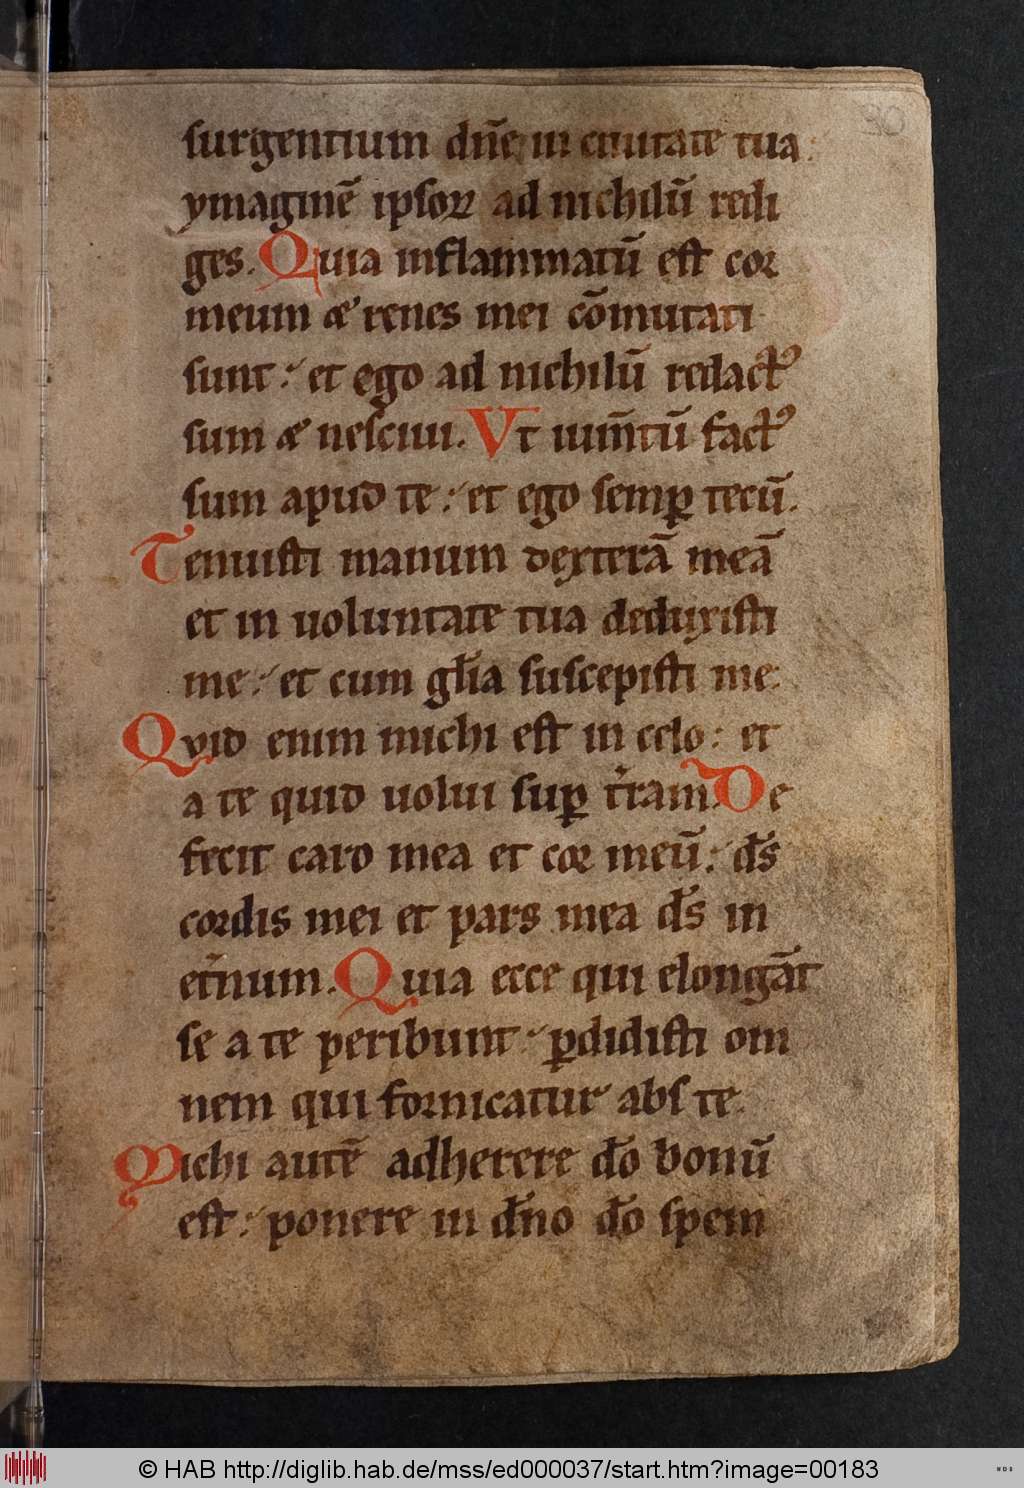 surgentium dn̄e in ciuitate tua
ymaginē ipsoꝝ ad nichilū redi
ges. Quia inflammatū est cor
meum & renes mei cōmutati
sunt : et ego ad nichilū redactꝰ
sum & nesciui. Vt ium̄tū factꝰ
sum apud te : et ego semꝑ tecū.
Tenuisti manum dexterā meā
et in uoluntate tua deduxisti
me : et cum gl̄ia suscepisti me.
Quid enim michi est in celo : et
a te quid uolui suꝑ t̄ram. De
fecit caro mea et cor meū : ds̄
cordis mei et pars mea ds̄ in
et̄num. Quia ecce qui elongāt
se a te peribunt : ꝑdidisti om
nem qui fornicatur abs te.
Michi autē adherere dō bonū
est : ponere in dn̄o dō spem
© HAB http://diglib.hab.de/mss/ed000037/start.htm?image=00183